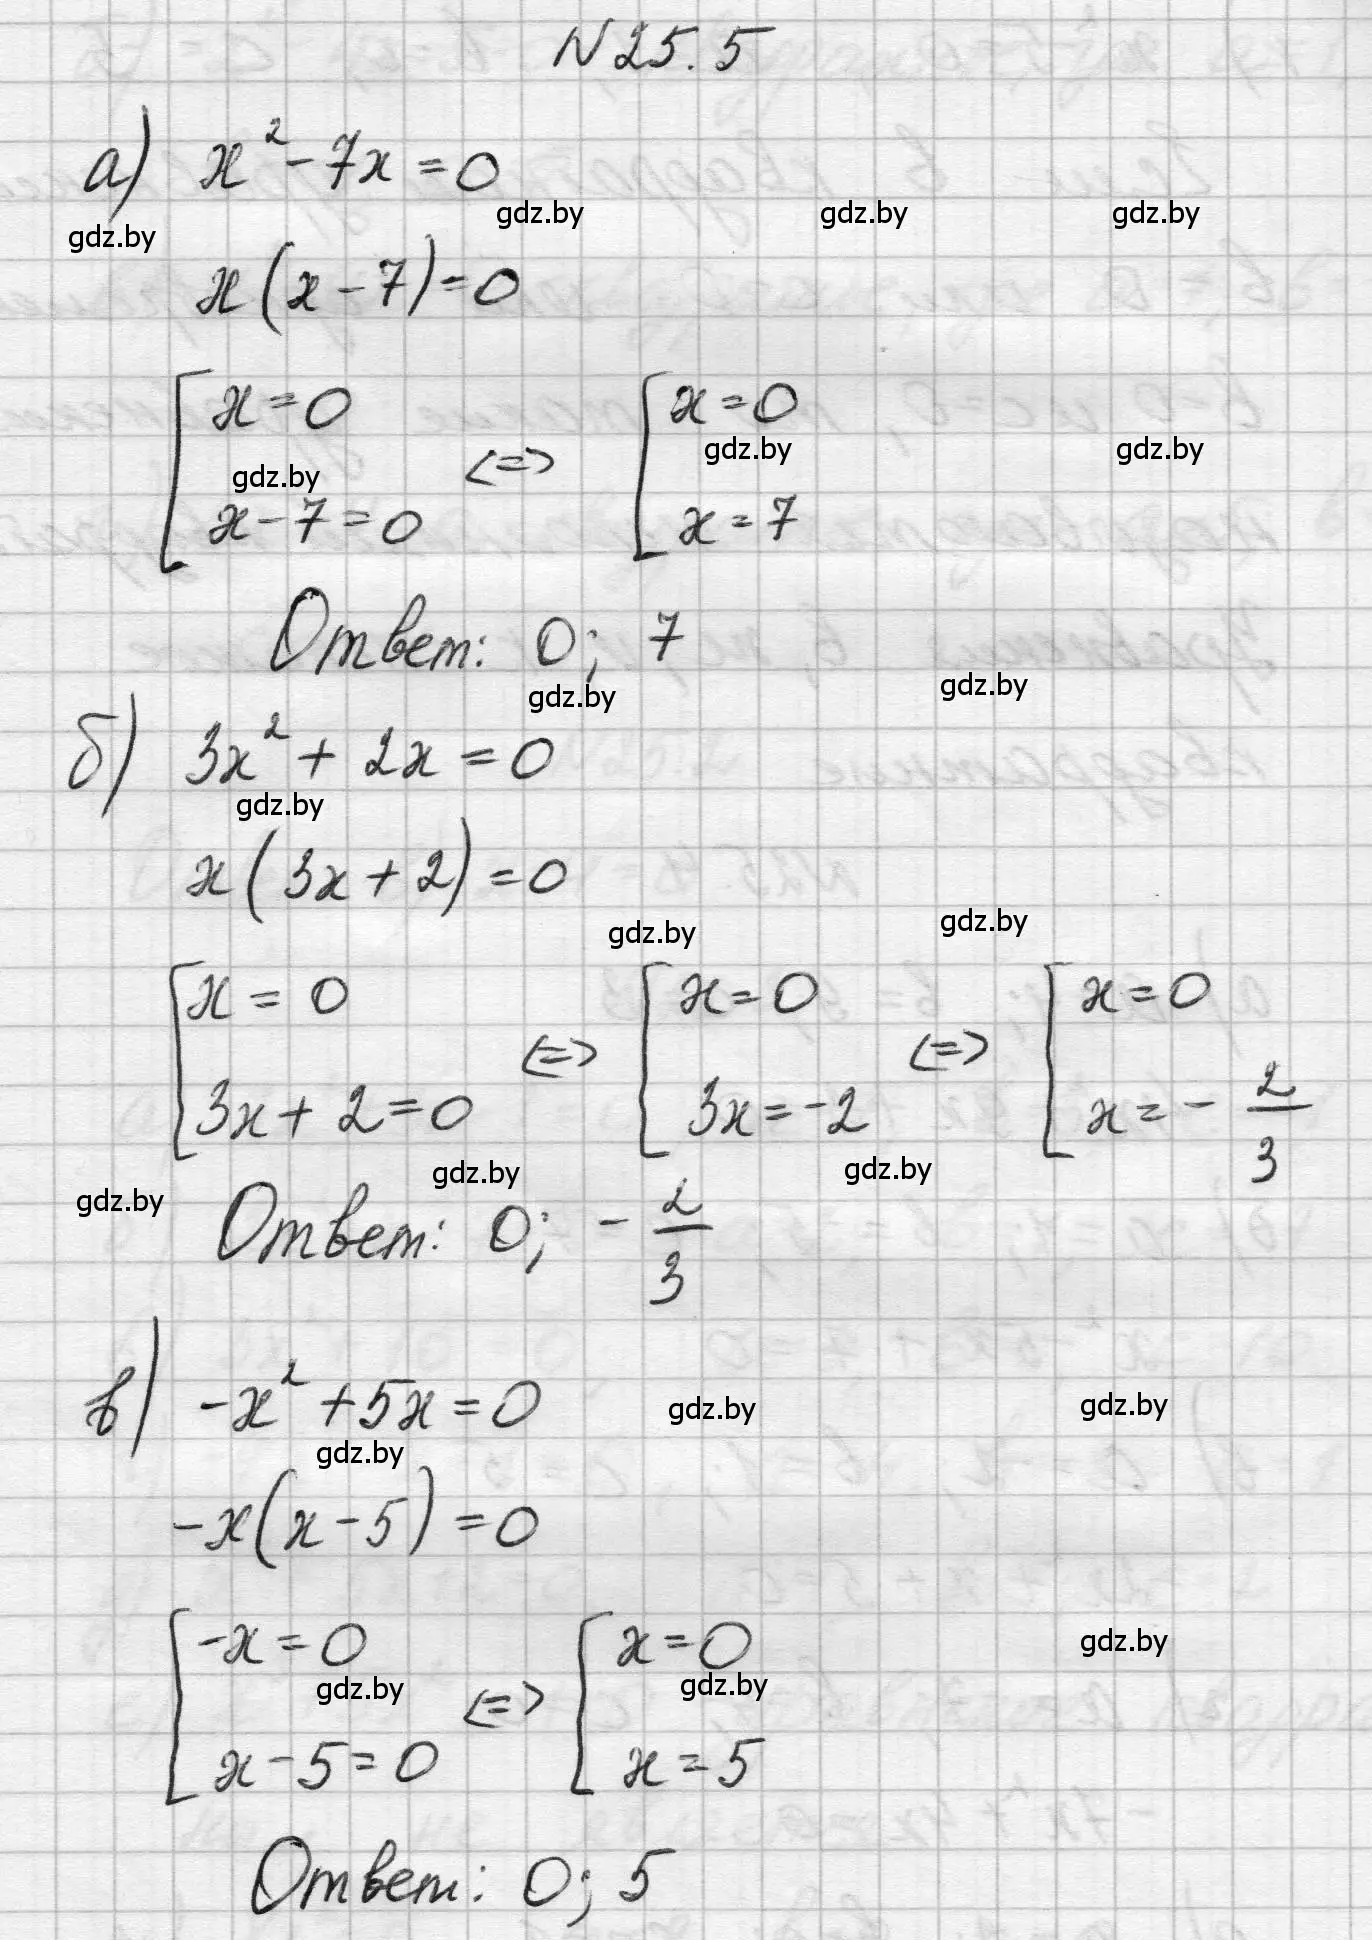 N 25.5
а) x² - 7x = 0
gdz.by gdz.by gdz.by gdz.by
x(x - 7) = 0
[ x = 0 [ x = 0
gdz.by <=> gdz.by gdz.by
x - 7 = 0 x = 7
Ответ: 0; 7
gdz.by gdz.by
б) 3x² + 2x = 0
gdz.by
x(3x + 2) = 0
gdz.by gdz.by
[ x = 0 [ x = 0 [ x = 0
<=> <=>
3x + 2 = 0 3x = -2 x = - 2/3
gdz.by gdz.by gdz.by
Ответ: 0; - 2/3
в) -x² + 5x = 0
gdz.by gdz.by gdz.by
-x(x - 5) = 0
[ -x = 0 [ x = 0
gdz.by <=> gdz.by gdz.by
x - 5 = 0 x = 5
Ответ: 0; 5